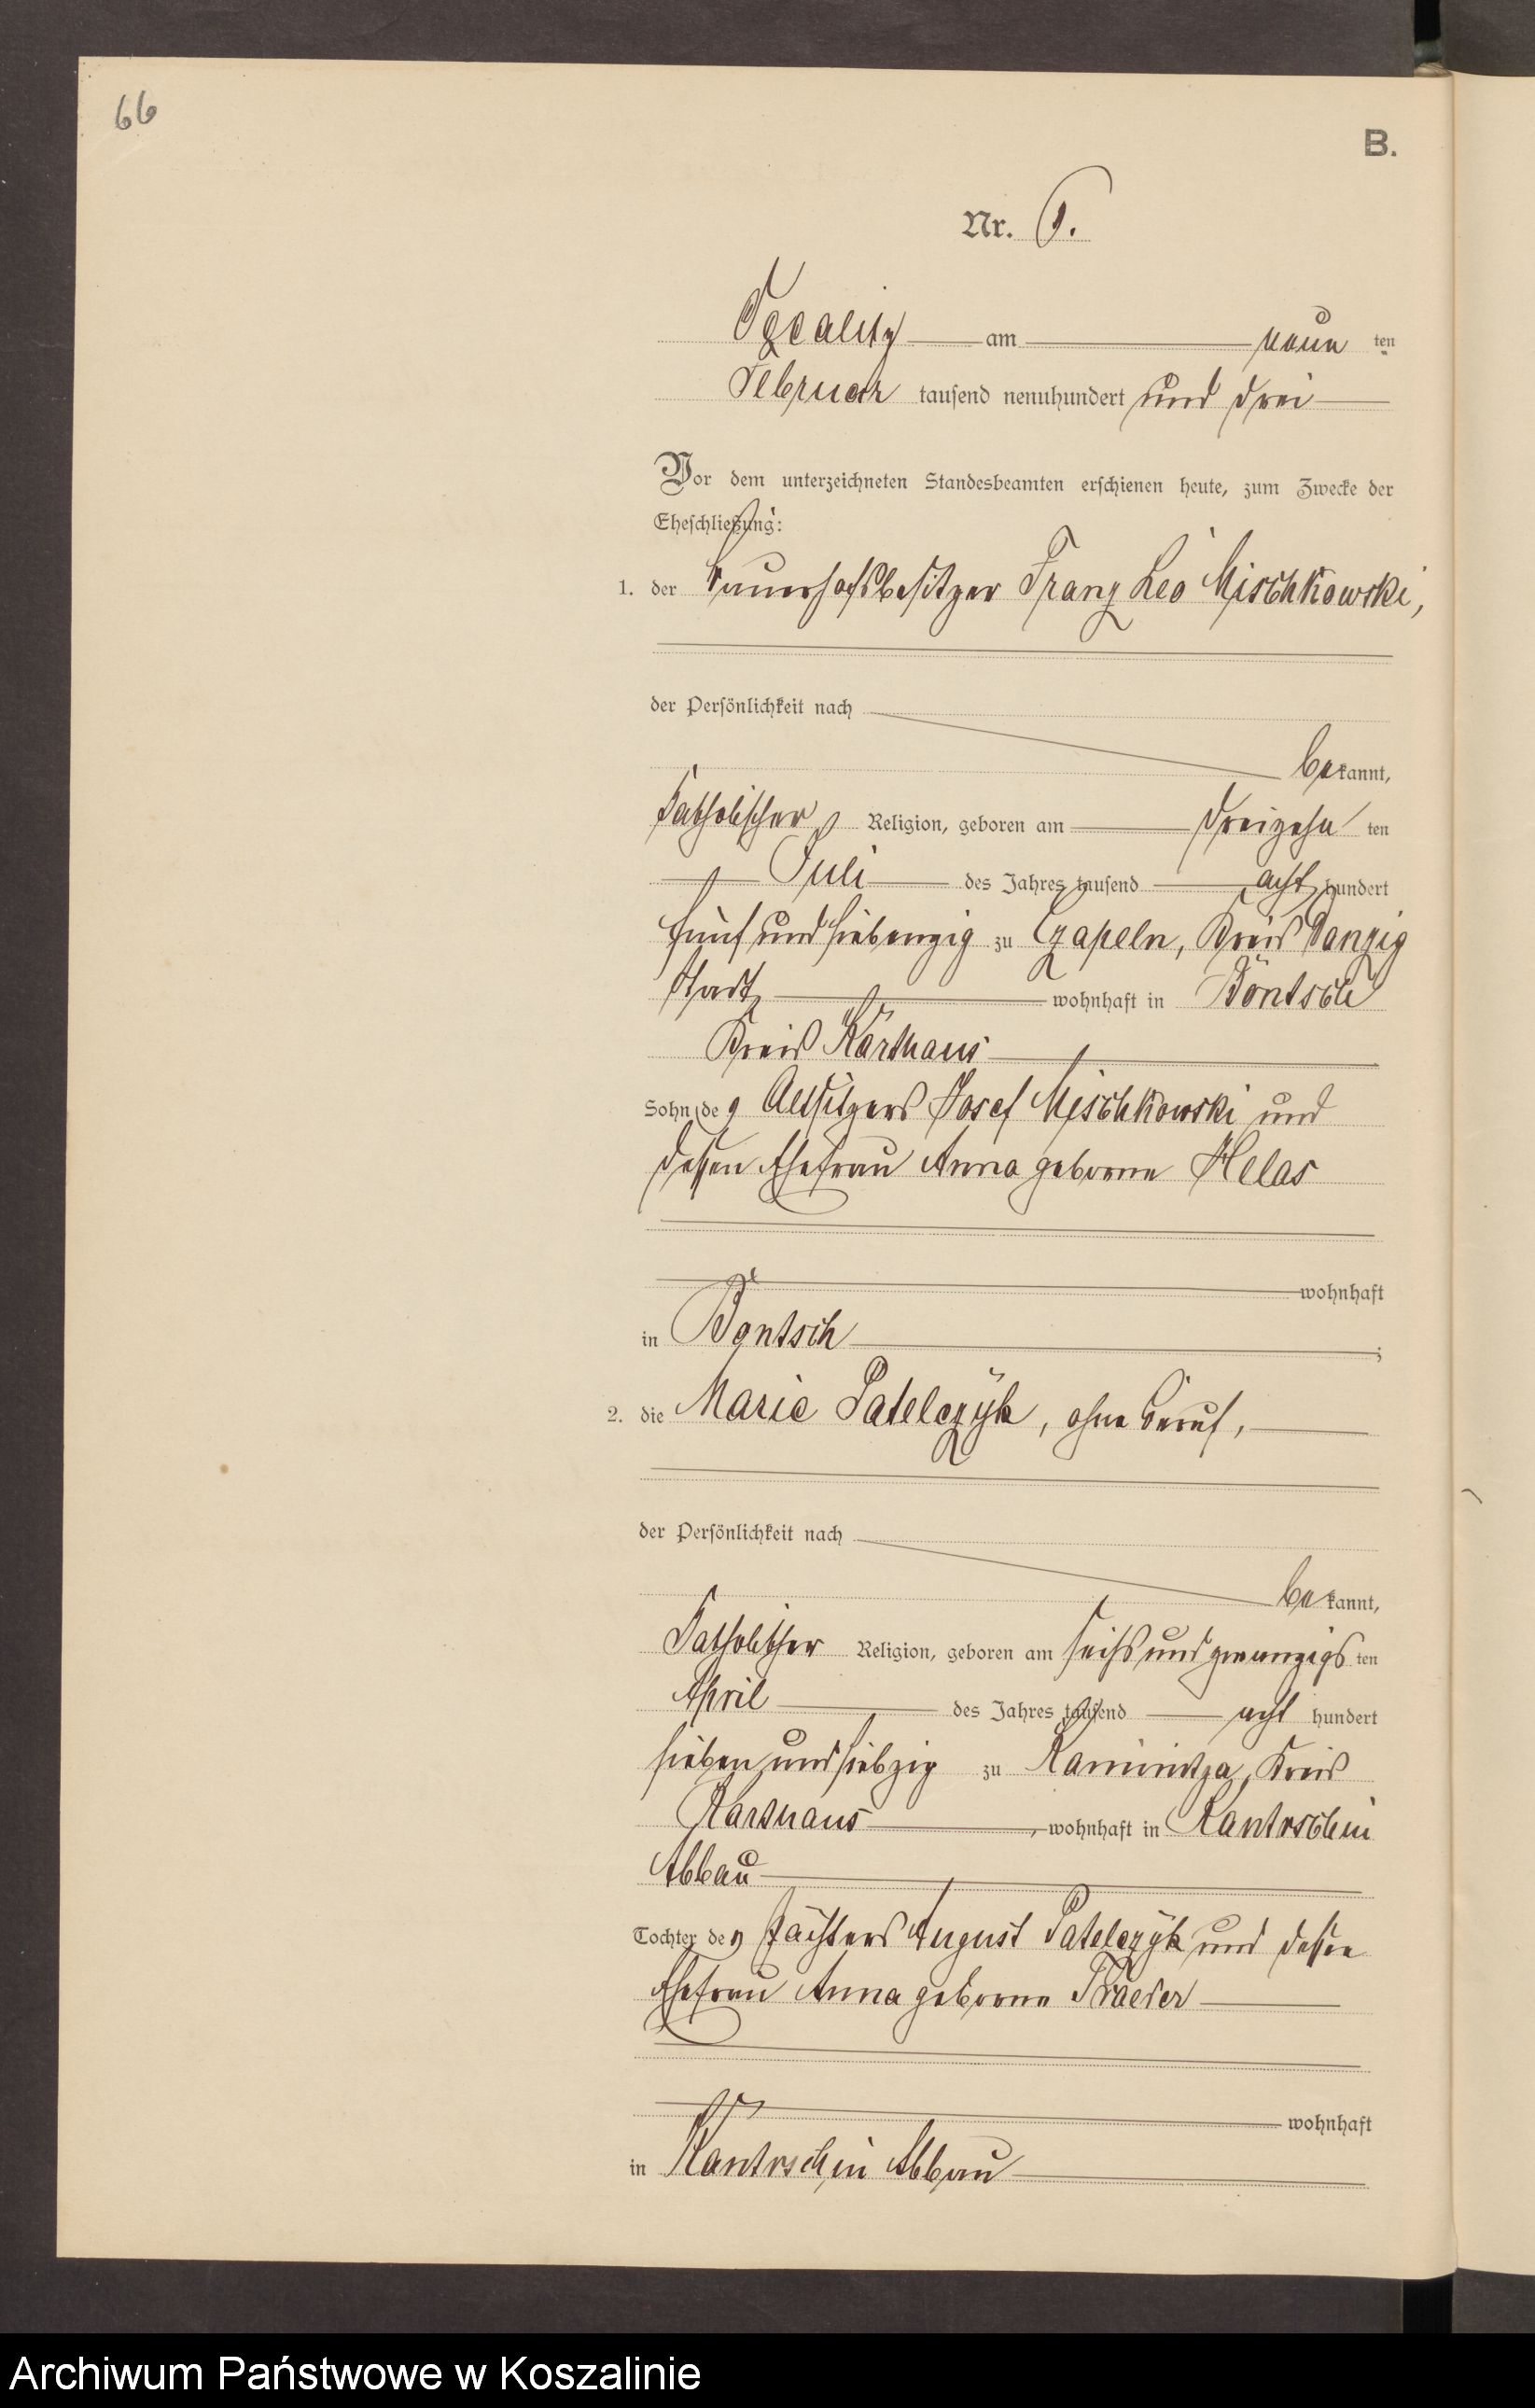 66
B.
Nr. 9.
am neun ten
Februar tausend neunhundert und drei
Vor dem unterzeichneten Standesbeamten erschienen heute, zum Zwecke der
Eheschließung:
1. der Bauerhofsbesitzer Franz Leo Mischkowski,
der Persönlichkeit nach
bekannt,
katholischer Religion, geboren am dreizehn ten
Juli des Jahres tausend acht hundert
fünf und siebenzig zu Czapeln, Kreis Danzig
wohnhaft in Bontsch
Kreis Karthaus
Sohn des Altsitzers Josef Mischkowski und
dessen Ehefrau Anna geborne Helas
wohnhaft
in Bontsch ;
2. die Marie Patelczyk, ohne Beruf,
der Persönlichkeit nach
bekannt,
katholischer Religion, geboren am sechsundzwanzigs ten
April des Jahres tausend acht hundert
sieben und siebzig zu Kaminitza, Kreis
Karthaus, wohnhaft in Kantrschin
Abbau
Tochter des Pächters August Patelczyk und dessen
Ehefrau Anna geborne Traeder
wohnhaft
in Kantrschin Abbau
Archiwum Państwowe w Koszalinie